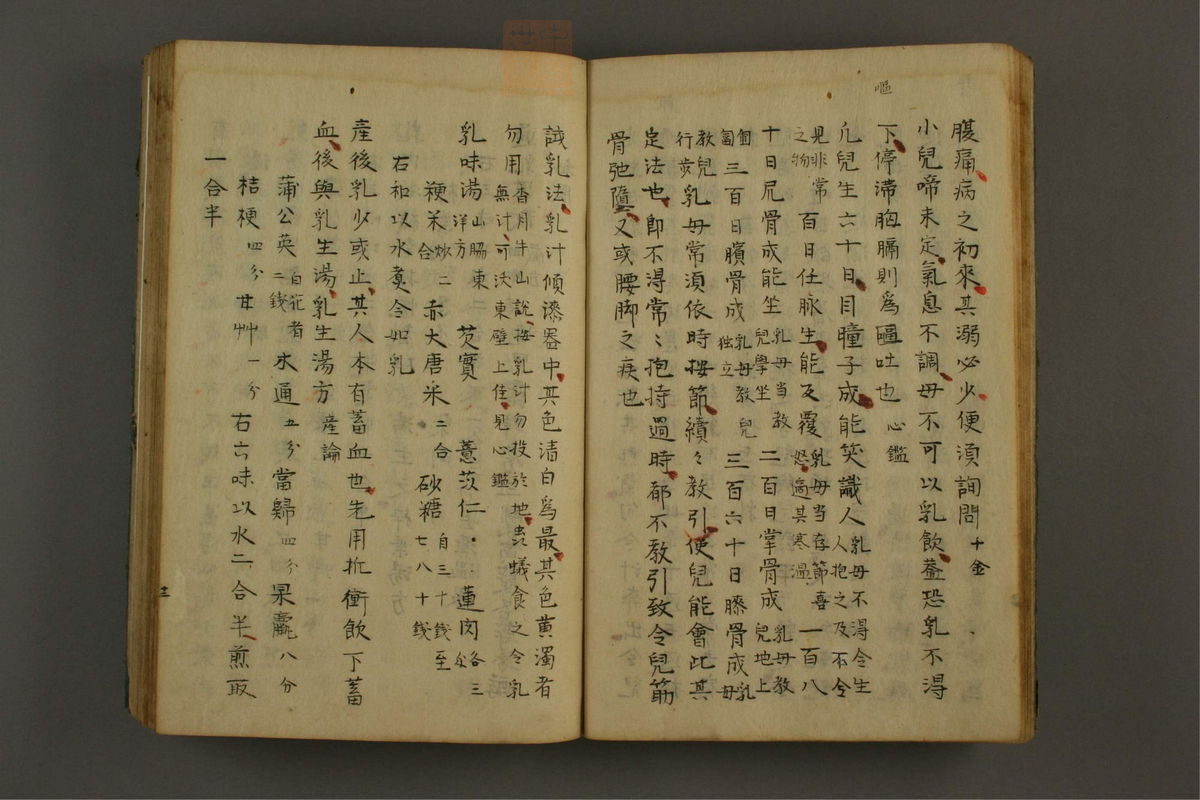 嘔
腹痛病之初來其溺必少便須詢問千金
小兒啼未定氣息不調母不可以乳飲蓋恐乳不得
下停滯胸膈則爲嘔吐也 心鑑
凡兒生六十日目瞳子成能笑識人乳母不得令生人抱之及不令
見非常之物 百日任脉生能反覆乳母当存節喜怒適其寒温 一百八
十日尻骨成能坐乳母当教兒學坐 二百日掌骨成乳母教兒地上
匍匐 三百日臏骨成乳母教兒独立 三百六十日膝骨成乳母
教兒行步 乳母常須依時按節續々教引使兒能會此其
定法也即不得常々抱持過時都不教引致令兒筋
骨弛墮又或腰脚之疾也
試乳法乳汁傾漆器中其色清白爲最其色黄濁者
勿用 香月牛山説按乳汁勿投於地虫蟻食之令乳無汁可沃東壁上佳見心鑑
乳味湯 山脇東洋方 芡實 薏苡仁 蓮肉各三
粳米炒二合 赤大唐米二合 砂糖自三十錢至七八十錢
右和以水煮令如乳
産後乳少或止其人本有蓄血也先用折衝飲下蓄
血後與乳生湯乳生湯方 産論
蒲公英白花者二錢 木通五分 當歸四分 果蠃八分
桔梗四分 甘艸一分 右六味以水二合半煎取
一合半